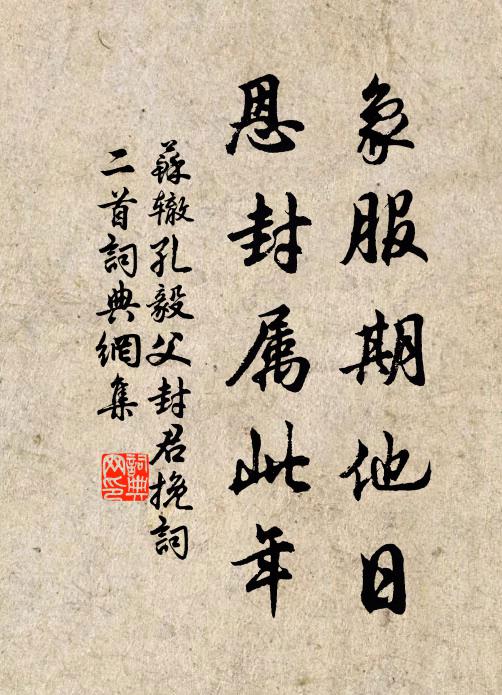 象服期他日
恩封属此年
蘇辙孔毅父封君挽詞
二首詞典網集
詞典
网印